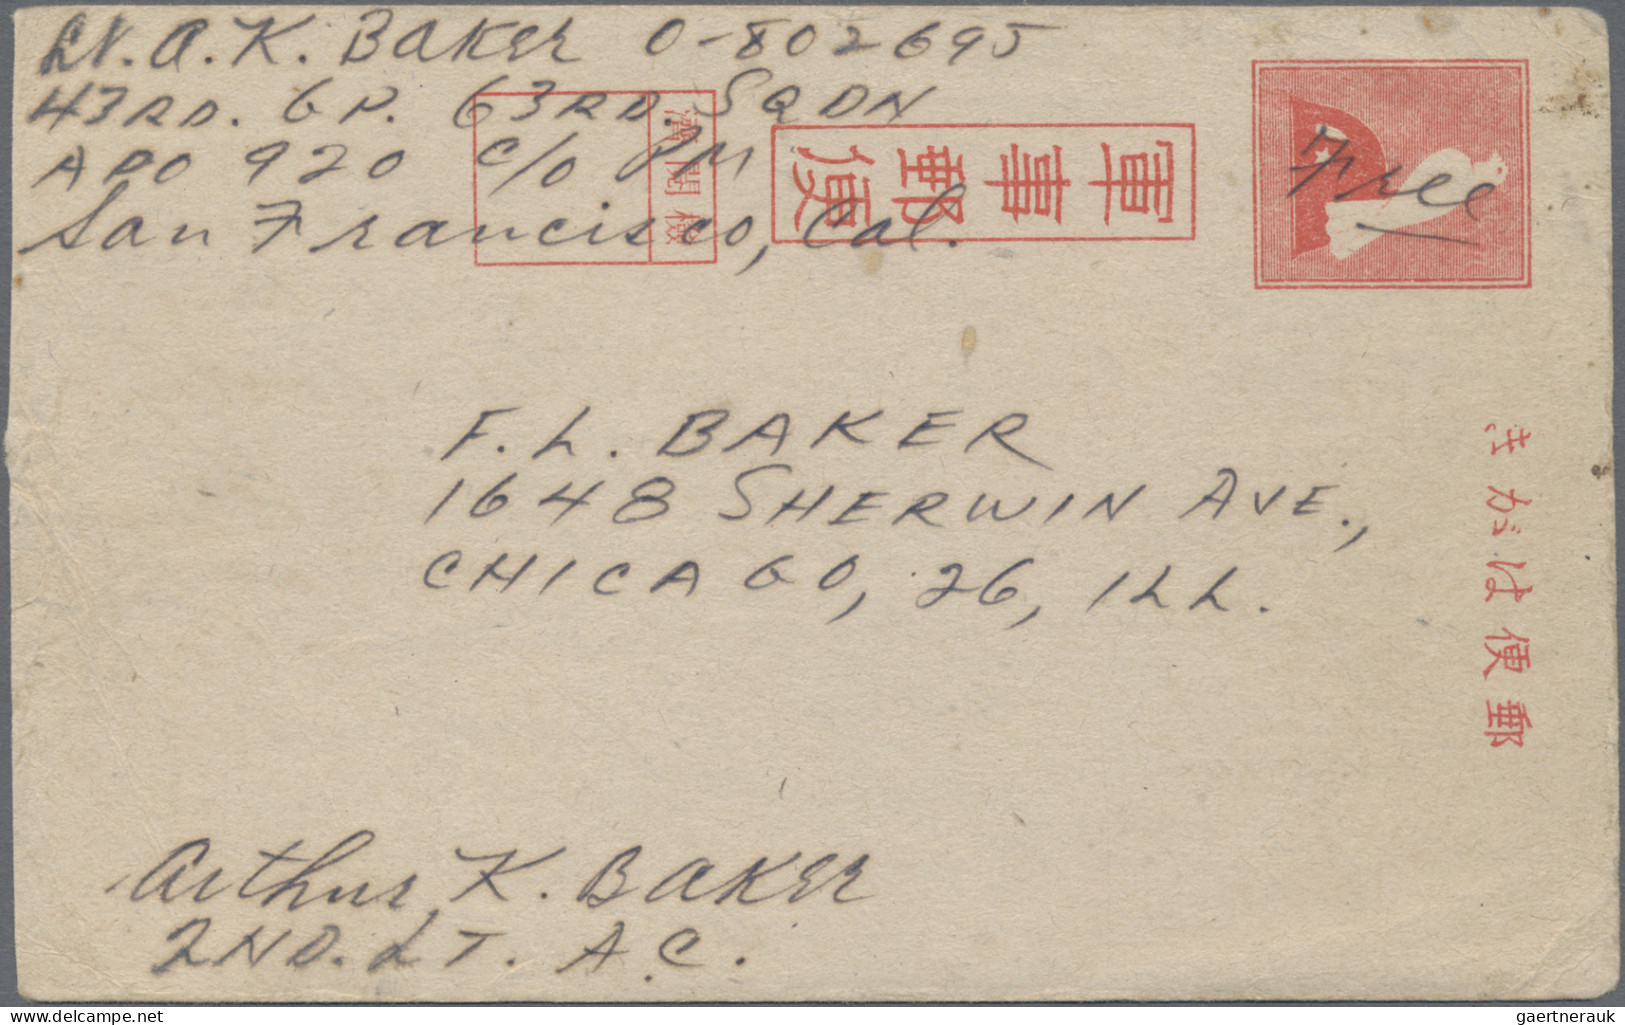 Lt. A. K. BAKER O-802695
43RD. GP. 63RD. SQDN
APO 920 C/O PM
San Francisco, Cal.
Free
軍事郵便
濟閲檢
F. L. BAKER
1648 SHERWIN AVE.,
CHICAGO, 26, ILL.
きがは便郵
Arthur K. BAKER
2ND. LT. A.C.
gaertnerauk